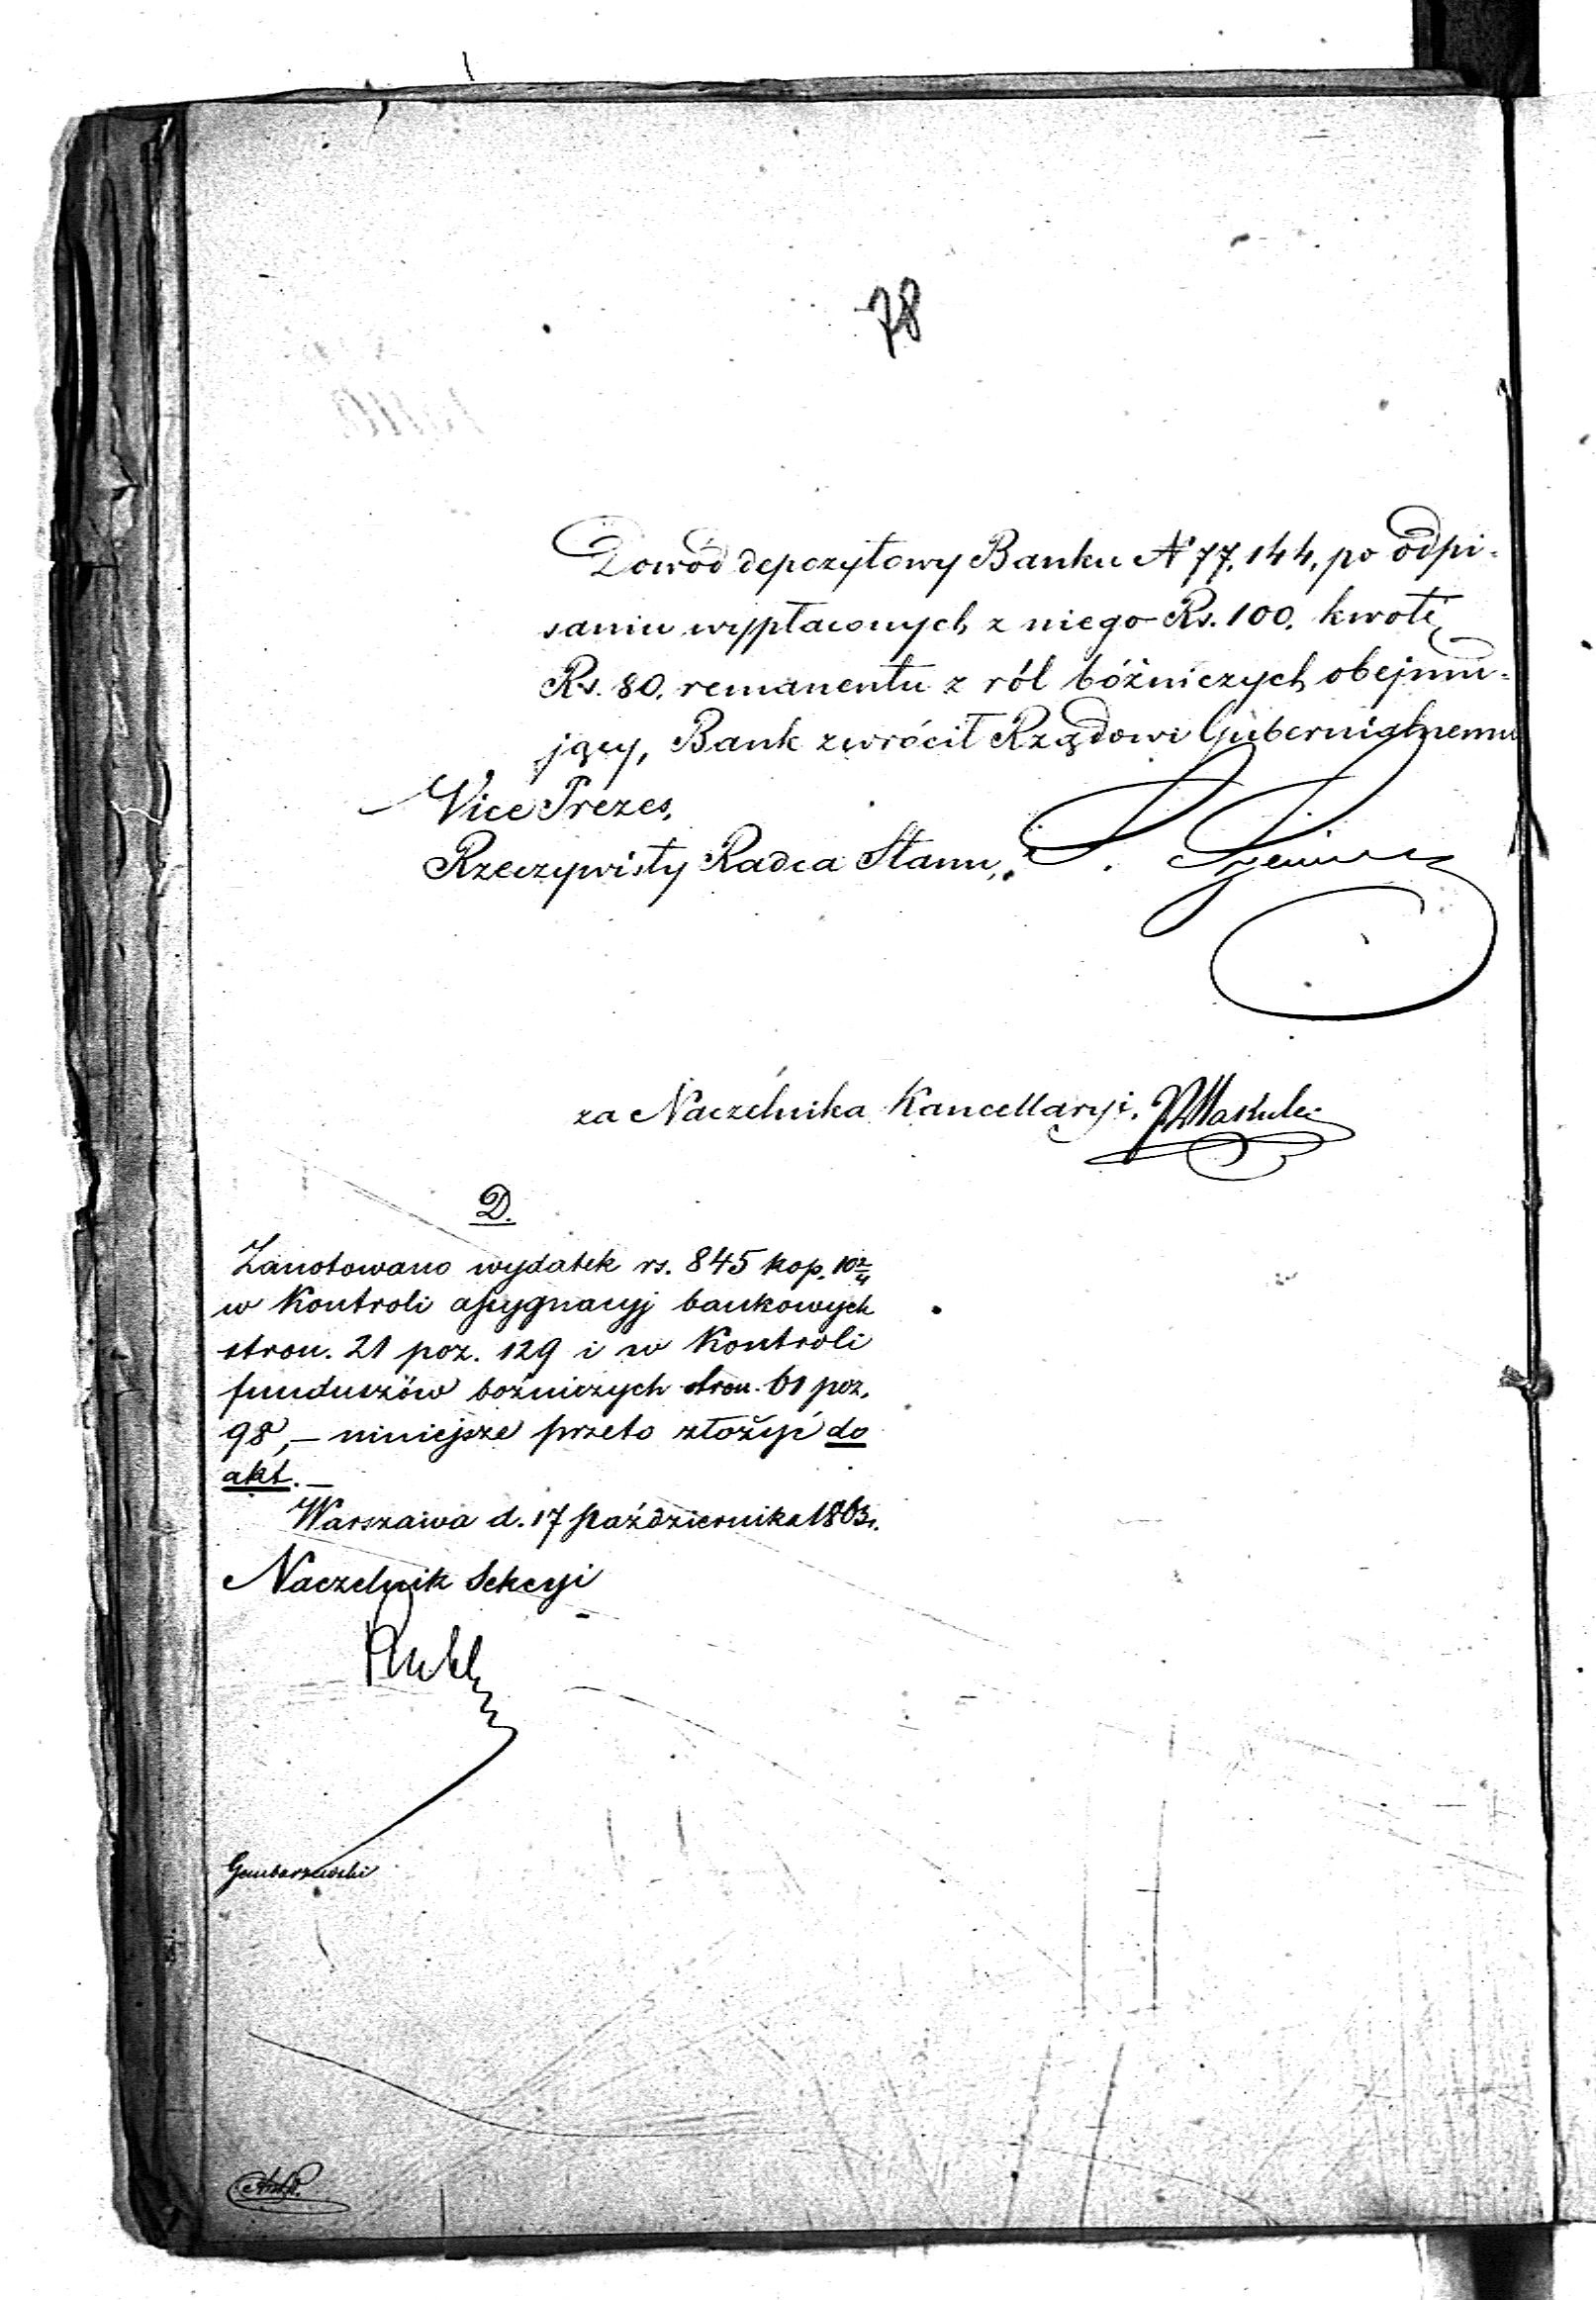 78
Dowód depozytowy Banku N 77,144, po odpi-
saniu wypłaconych z niego Rs. 100. kwotę
Rs. 80. remanentu z ról bóżniczych obejmu-
jący, Bank zwrócił Rządowi Gubernialnemu
Vice Prezes,
Rzeczywisty Radca Stanu,
za Naczelnika Kancellaryi.
D.
Zanotowano wydatek rs. 845 kop. 10 2/4
w Kontroli assygnacyj bankowych
stron. 21 poz. 129 i w Kontroli
funduszów bożniczych stron. 61 poz.
98, — niniejsze przeto złożyć do
akt. —
Warszawa d. 17 Października 1863 r.
Naczelnik Sekcyi